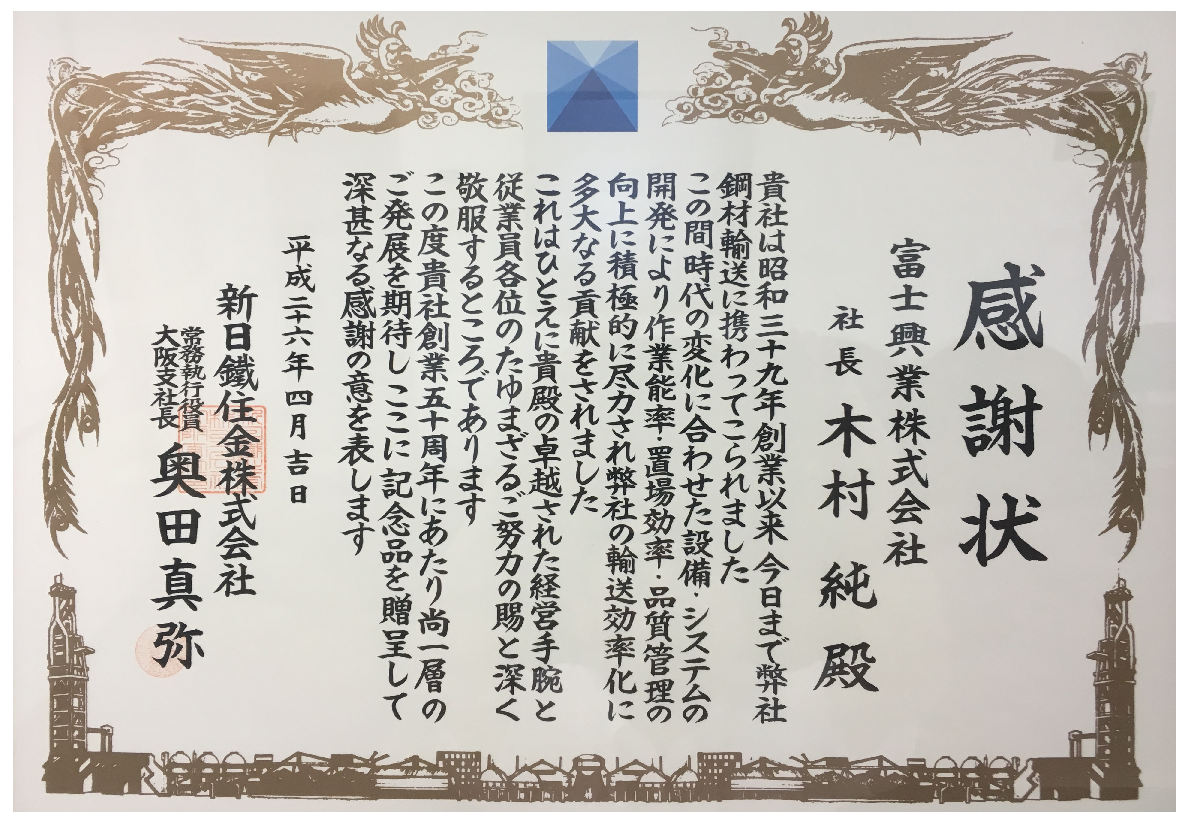 感謝状
富士興業株式会社
社長 木村 純 殿
貴社は昭和三十九年創業以来 今日まで弊社
鋼材輸送に携わってこられました
この間時代の変化に合わせた設備・システムの
開発により作業能率・置場効率・品質管理の
向上に積極的に尽力され弊社の輸送効率化に
多大なる貢献をされました
これはひとえに貴殿の卓越された経営手腕と
従業員各位のたゆまざるご努力の賜と深く
敬服するところであります
この度貴社創業五十周年にあたり尚一層の
ご発展を期待し ここに記念品を贈呈して
深甚なる感謝の意を表します
平成二十六年四月吉日
新日鐵住金株式会社
常務執行役員
大阪支社長 奥田真弥